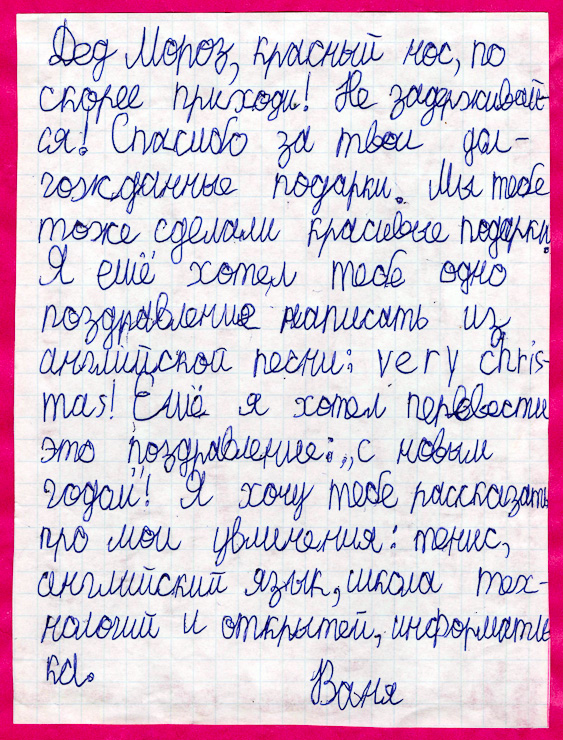 Дед Мороз, красный нос, по
скорее приходи! Не задерживай-
ся! Спасибо за твои дол-
гожданные подарки. Мы тебе
тоже сделали красивые подарки.
Я ешё хотел тебе одно
поздравление написать из
английской песни: very chris-
tmas! Ешё я хотел перевести
это поздравление: „с новым
годом"! Я хочу тебе рассказать
про мои увличения: тенис,
английский язык, школа тех-
нологий и открытей, информати
ка.
Ваня